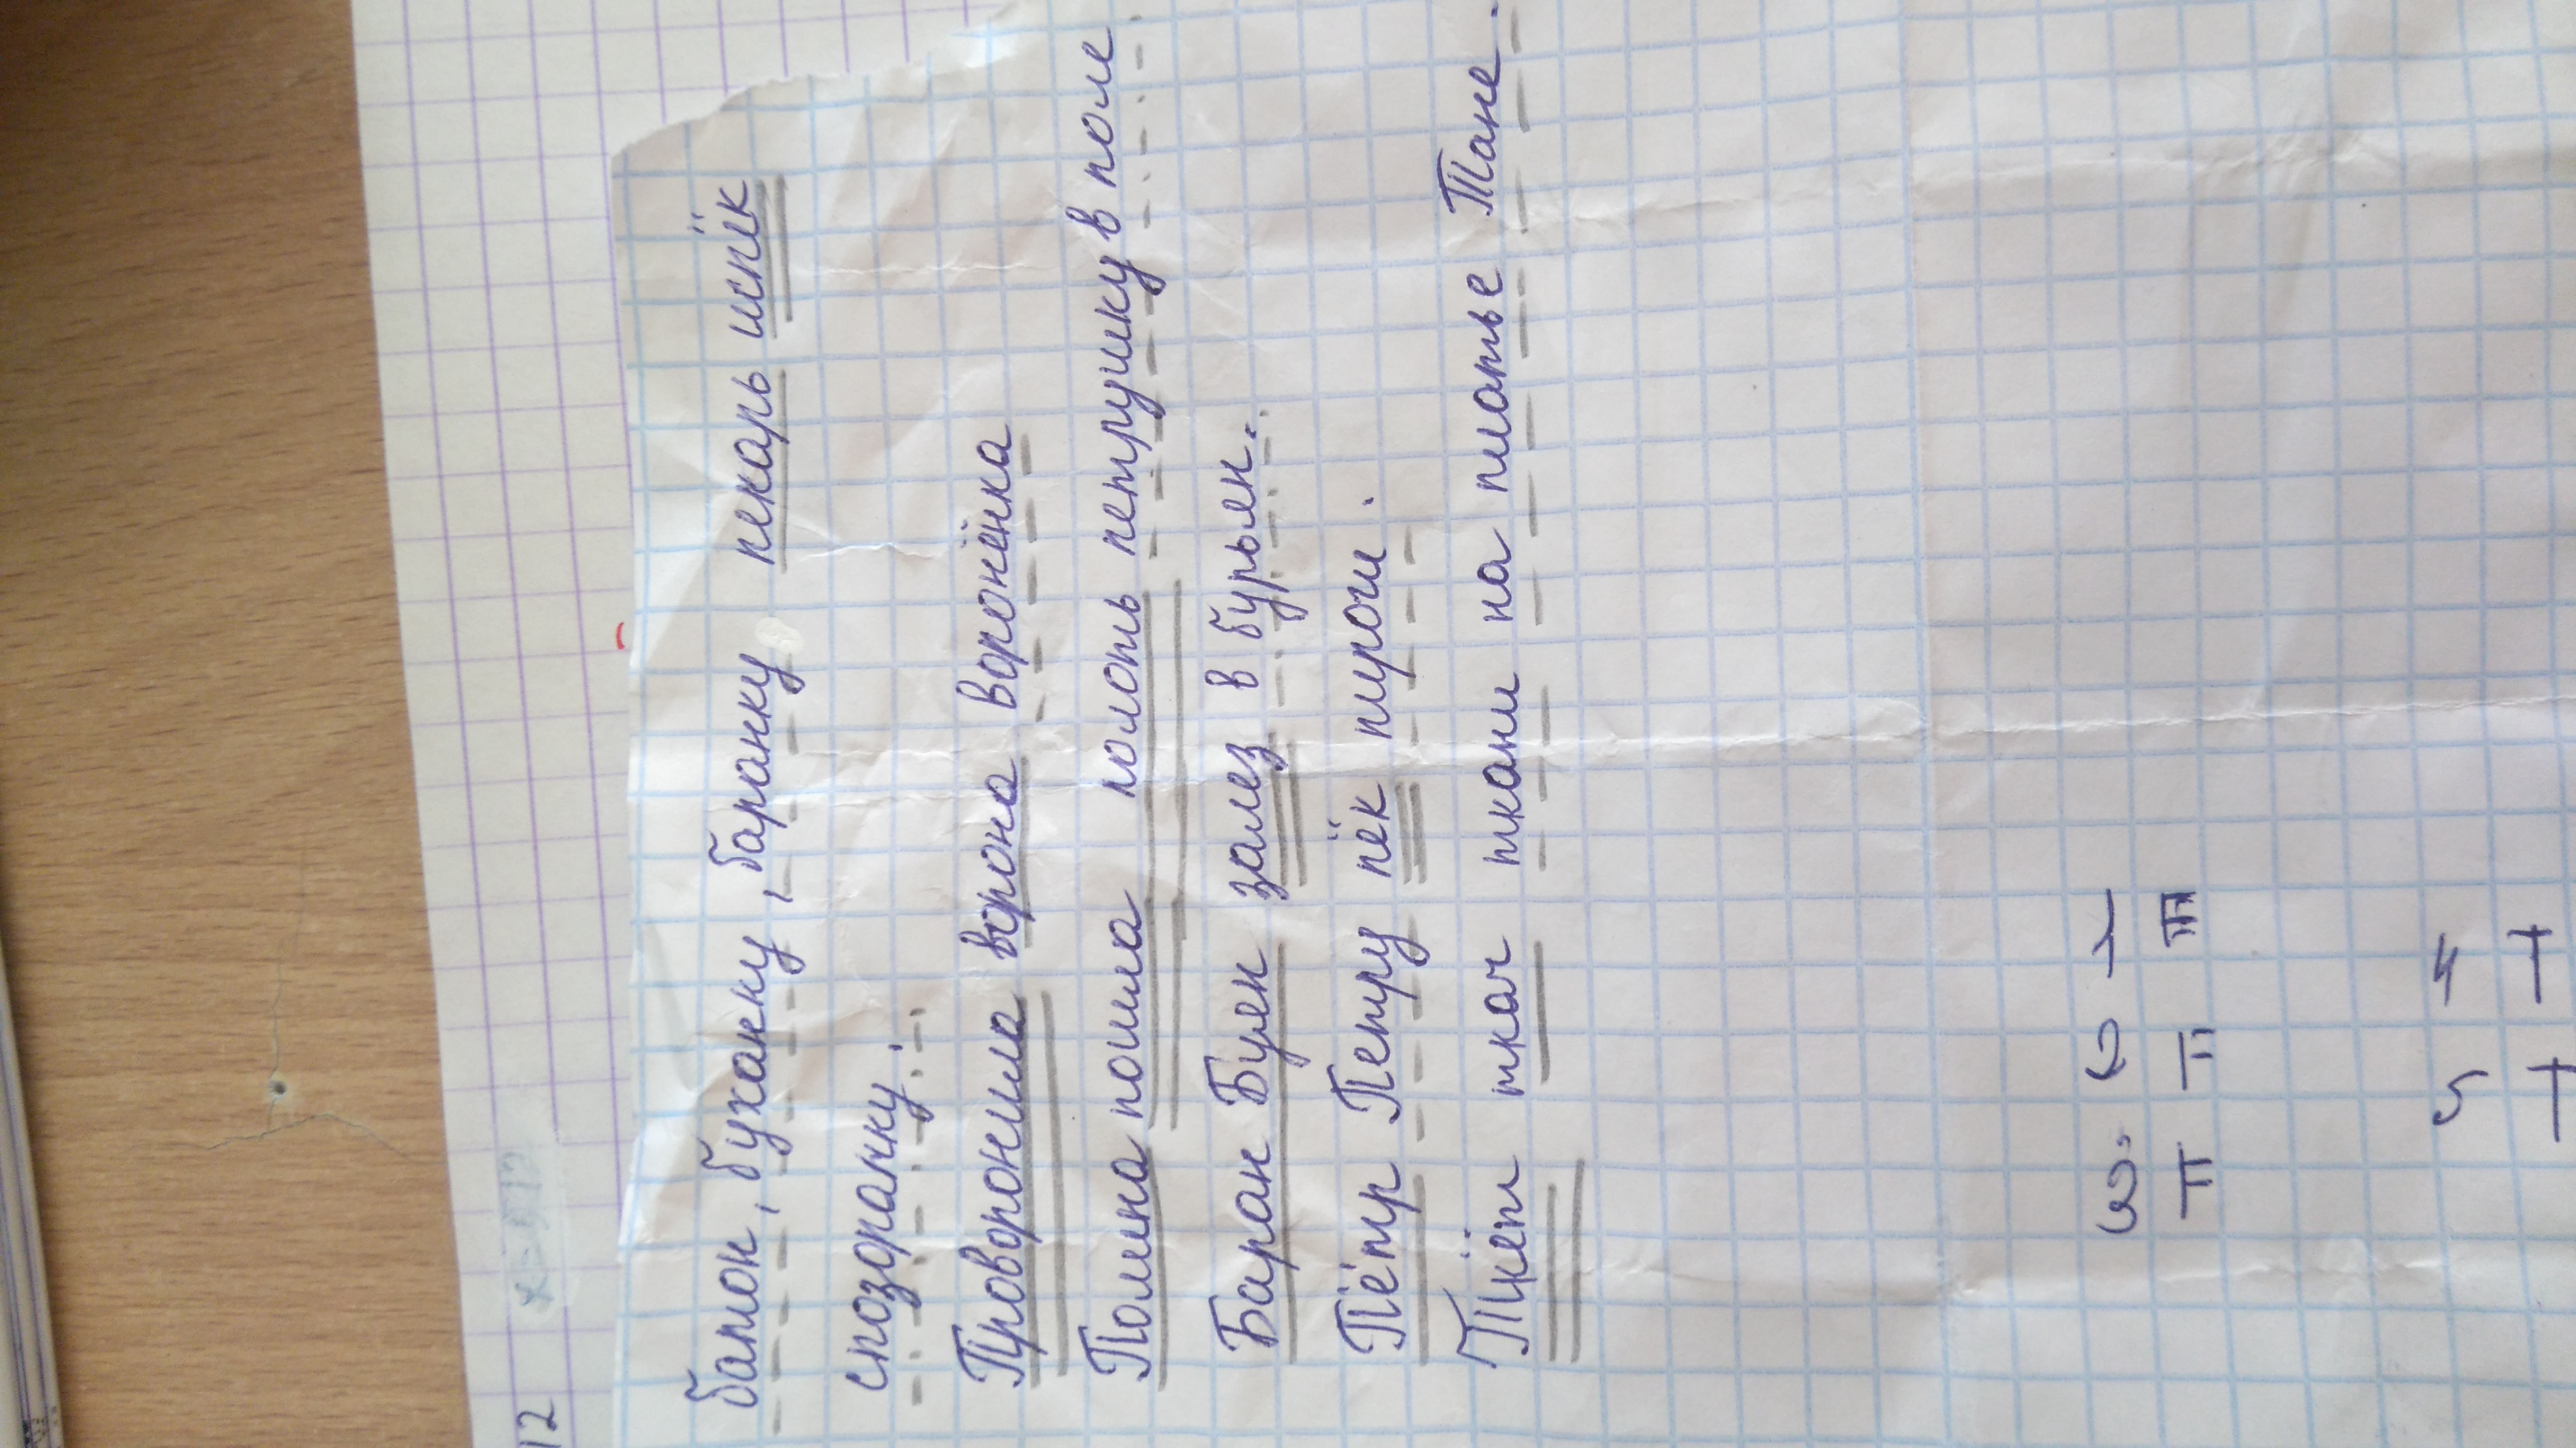 батон, буханку, баранку пекарь испёк
спозоранку.
Проворонила ворона воронёнка
Полина пошла полоть петрушку в поле
Баран Буян залез в бурьян.
Пётр Петру пёк пироги.
Ткёт ткач ткани на платье Тане.
12